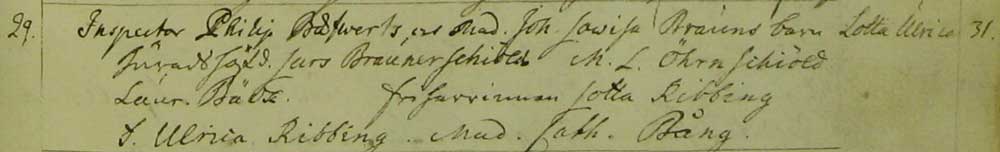 29. Inspector Philip Båfwerts, och Mad. Joh. Lowisa Brauns barn Lotta Ulrica 31.
Lars Braunerschiöld M. L. Öhrnschiöld
Laur. Bååt. friherrinnan Lotta Ribbing
Ulrica Ribbing. Mad. Cath. Bång.